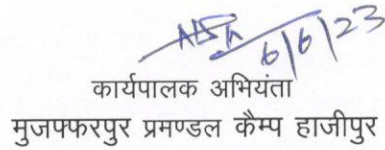 6/6/23
कार्यपालक अभियंता
मुजफ्फरपुर प्रमण्डल कैम्प हाजीपुर